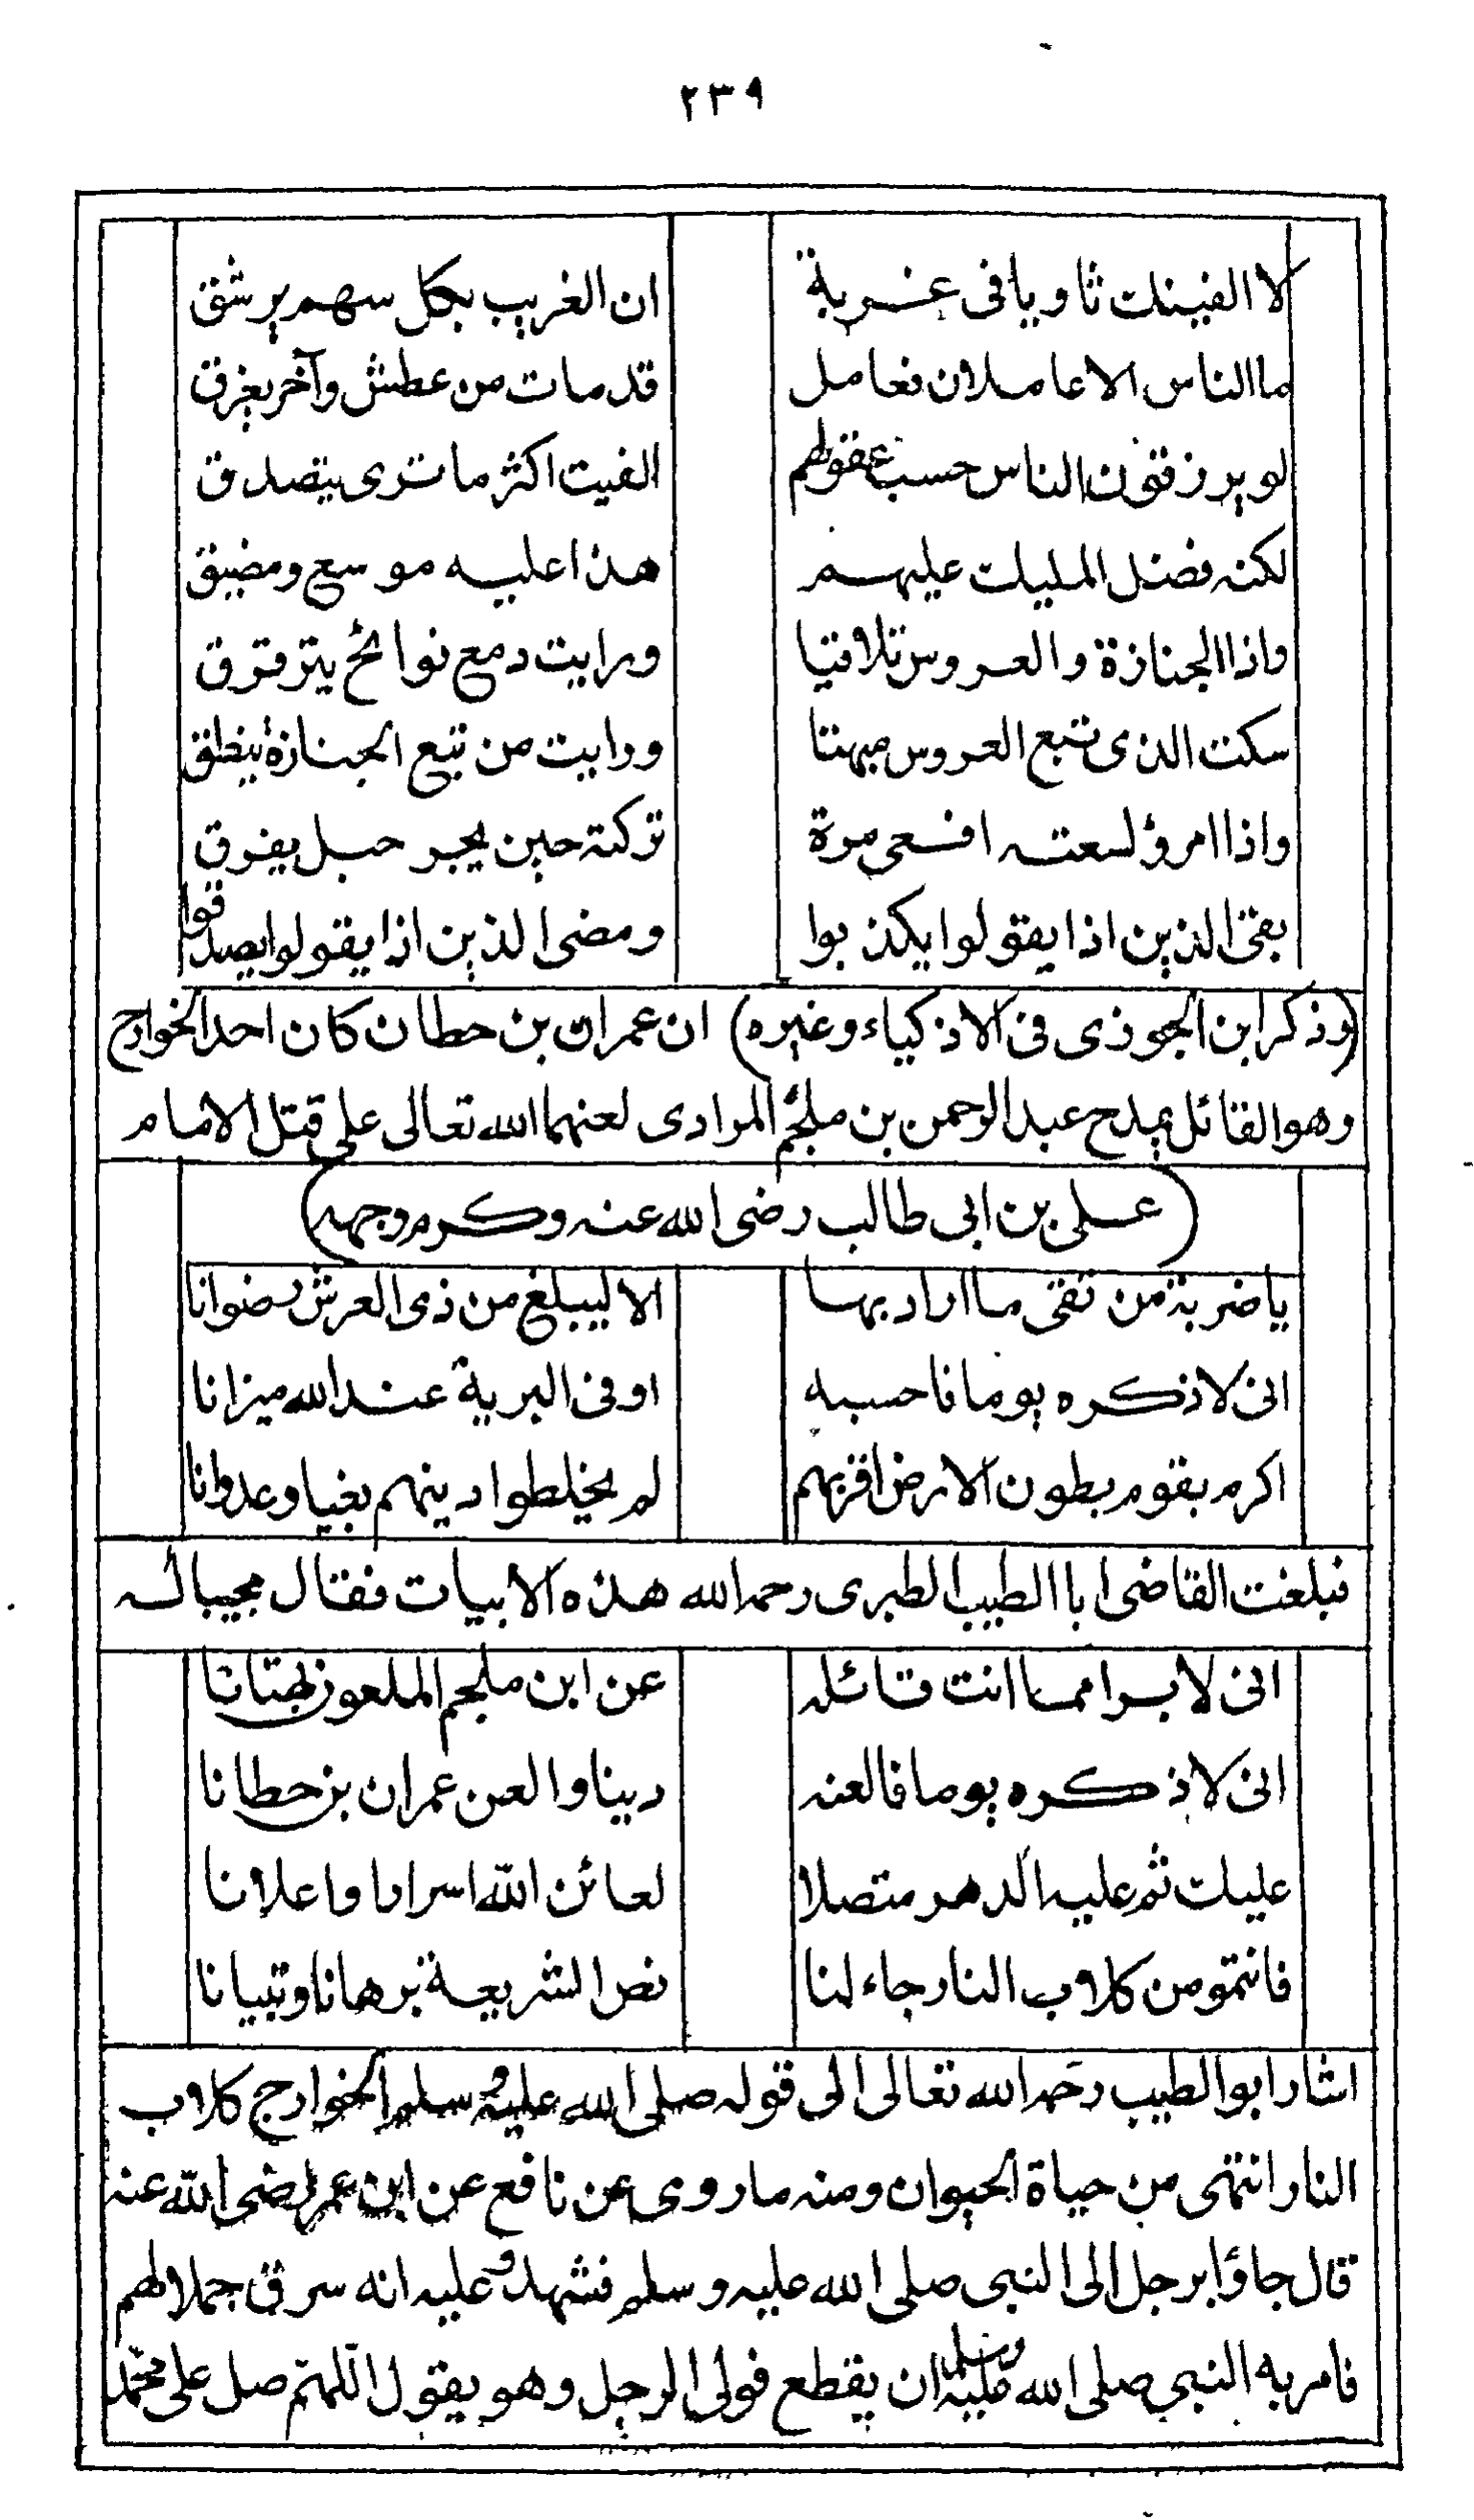 ٢٣٩
لا الفينك ثاويا فى غربة ان الغريب بكل سهم يرشق
ما الناس الا عاملان فعامل قد مات من عطش وآخر يغرق
لو يرزقون الناس حسب عقولهم الفيت اكثر ما ترى يتصدق
لكنه فضل المليك عليهم هذا عليه موسع ومضيق
واذا الجنازة والعروس تلاقتيا ورايت دمع نوائح يترقرق
سكت الذى تبع العروس مبهتا ورايت من تبع الجنازة ينطق
واذا امرؤ لسعته افسعى مرة تركته حين يجر حبل يفرق
بقى الذين اذا يقولوا يكذبوا ومضى الذين اذا يقولوا يصدقوا
(وذكر ابن الجوذى فى الاذكياء وغيره) ان عمران بن حطان كان احد الخوارج
وهو القائل يمدح عبد الرحمن بن ملجم المرادى لعنهما الله تعالى على قتل الامام
(على بن ابى طالب رضى الله عنه وكرم وجهه)
يا ضربة من تقى ما اراد بها الا ليبلغ من ذى العرش رضوانا
انى لاذكره يوما فاحسبه اوفى البرية عند الله ميزانا
اكرم بقوم بطون الارض اقربهم لم يخلطوا دينهم بغيا وعدوانا
فبلغت القاضى ابا الطيب الطبرى رحمه الله هذه الابيات فقال مجيبا له
انى لابرا مما انت قائله عن ابن ملجم الملعون بهتانا
انى لاذكره يوما فالعنه دينا والعن عمران بن حطانا
عليك ثم عليه الدهر متصلا لعائن الله اسرارا واعلانا
فانتمو من كلاب النار جاء لنا نص الشريعة برهانا وتبيانا
اشار ابو الطيب رحمه الله تعالى الى قوله صلى الله عليه وسلم الخوارج كلاب
النار انتهى من حياة الحيوان ومنه ما روى عن نافع عن ابن عمر رضى الله عنه
قال جاؤا برجل الى النبى صلى الله عليه وسلم فشهدو عليه انه سرق جملا لهم
فامر به النبى صلى الله عليه وسلم ان يقطع فولى الرجل وهو يقول اللهم صل على محمد